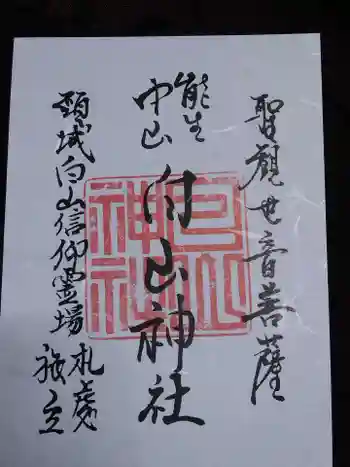 聖観世音菩薩
能生
中山
白山神社
頸城白山信仰霊場
札處
独立
白山神社